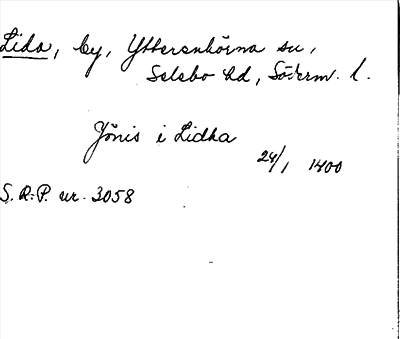 Lida, by, Ytterenhörna sn,
Selebo hd, Söderm. l.
Jönis i Lidha
24/1 1400
S.R.P. nr. 3058